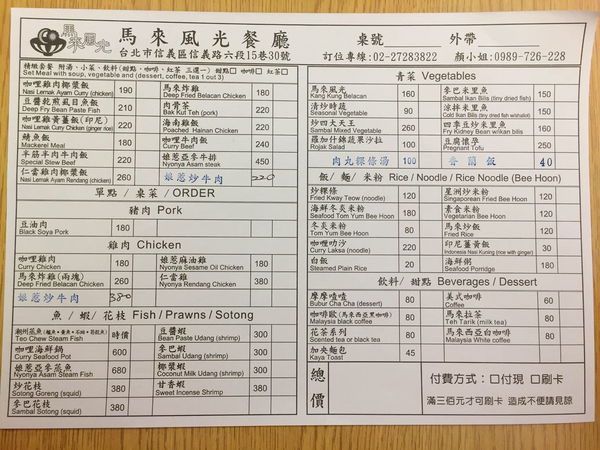 馬來風光
馬來風光餐廳
桌號 外帶
台北市信義區信義路六段15巷30號
訂位專線:02-27283822 顏小姐:0989-726-228
精緻套餐 附湯、小菜、飲料(甜點、咖啡、紅茶 三選一) 甜點□ 咖啡□ 紅茶□
Set Meal with soup, vegetable and (dessert, coffee, tea 1 out 3)
咖哩雞肉椰漿飯 190
Nasi Lemak Curry Chicken
豆醬乾煎虱目魚飯 210
Deep Fry Bean Paste Fish
咖哩雞黃薑飯(印尼) 220
Nasi Lemak Curry Chicken (ginger rice)
鯖魚飯 180
Mackerel Meal
半筋半肉牛肉飯 220
Special Stew Beef
仁當雞椰漿飯 260
Nasi Lemak Ayam Rendang (chicken)
馬來炸雞 180
Deep Fried Belacan Chicken
肉骨茶 220
Bak Kut Teh (pork)
海南雞飯 220
Poached Hainan Chicken
咖哩牛肉飯 240
Curry Beef
娘惹亞參牛排 450
Nyonya Asam steak
娘惹炒牛肉 220
單點 / 桌菜 / ORDER
豬肉 Pork
豆油肉 180
Black Soya Pork
雞肉 Chicken
咖哩雞肉 180
Curry Chicken
馬來炸雞(兩塊) 260
Deep Fried Belacan Chicken
娘惹炒牛肉 380
娘惹麻油雞 180
Nyonya Sesame Oil Chicken
仁當雞 180
Nyonya Rendang/chicken
魚 / 蝦 / 花枝 Fish / Prawns / Sotong
時價
Teo Chew Steam Fish
咖哩海鮮鍋 600
Curry Seafood Pot
娘惹亞參蒸魚 680
Nyonya Asam Steam Fish
炒花枝 380
Sotong Goreng (squid)
參巴花枝 380
Sambal Sotong (squid)
豆醬蝦 300
Bean Paste Udang (shrimp)
參巴蝦 300
Sambal Udang (shrimp)
椰漿蝦 300
Coconut Milk Udang (shrimp)
甘香蝦 380
Sweet Incense Shrimp
青菜 Vegetables
馬來風光 160
Kang Kung Belacan
清炒時蔬 90
Seasonal Vegetable
炒四大天王 260
Sambal Mixed Vegetable
羅加什錦蔬果沙拉 100
Rojak Salad
肉丸粿條湯 100
參巴來里魚 150
Sambal Ikan Bilis (tiny dried fish)
涼拌來里魚 150
Cold Ikan Bilis (tiny dried fish w/shallot)
四季豆炒來里魚 150
Fry Kidney Bean w/ikan bilis
豆腐懷孕 250
Pregnant Tofu
香蘭飯 40
飯 / 麵 / 米粉 Rice / Noodle / Rice Noodle (Bee Hoon)
炒粿條 120
Fried Kway Teow (noodle)
海鮮冬炎米粉 180
Seafood Tom Yum Bee Hoon
冬炎米粉 90
Tom Yum Bee Hoon
咖哩叻沙 220
Curry Laksa (noodle)
白飯 15
Steamed Plain Rice
星洲炒米粉 120
Singaporean Fried Bee Hoon
素食米粉 120
Vegetarian Bee Hoon
馬來炒飯 120
Fried Rice
印尼薑黃飯 30
Indonesia Nasi Kuning (rice with ginger)
海鮮粥 180
Seafood Porridge
飲料/ 甜點 Beverages / Dessert
摩摩喳喳 80
Bubur Cha Cha (dessert)
咖啡歐(馬來西亞黑咖啡) 80
Malaysia black coffee
花茶系列 80
Scented tea or black tea
加央麵包 45
Kaya Toast
美式咖啡 60
Coffee
馬來拉茶 80
Teh Tarik (milk tea)
馬來西亞白咖啡 80
Malaysia White coffee
總價
付費方式:口付現 口刷卡
滿三佰元才可刷卡 造成不便請見諒